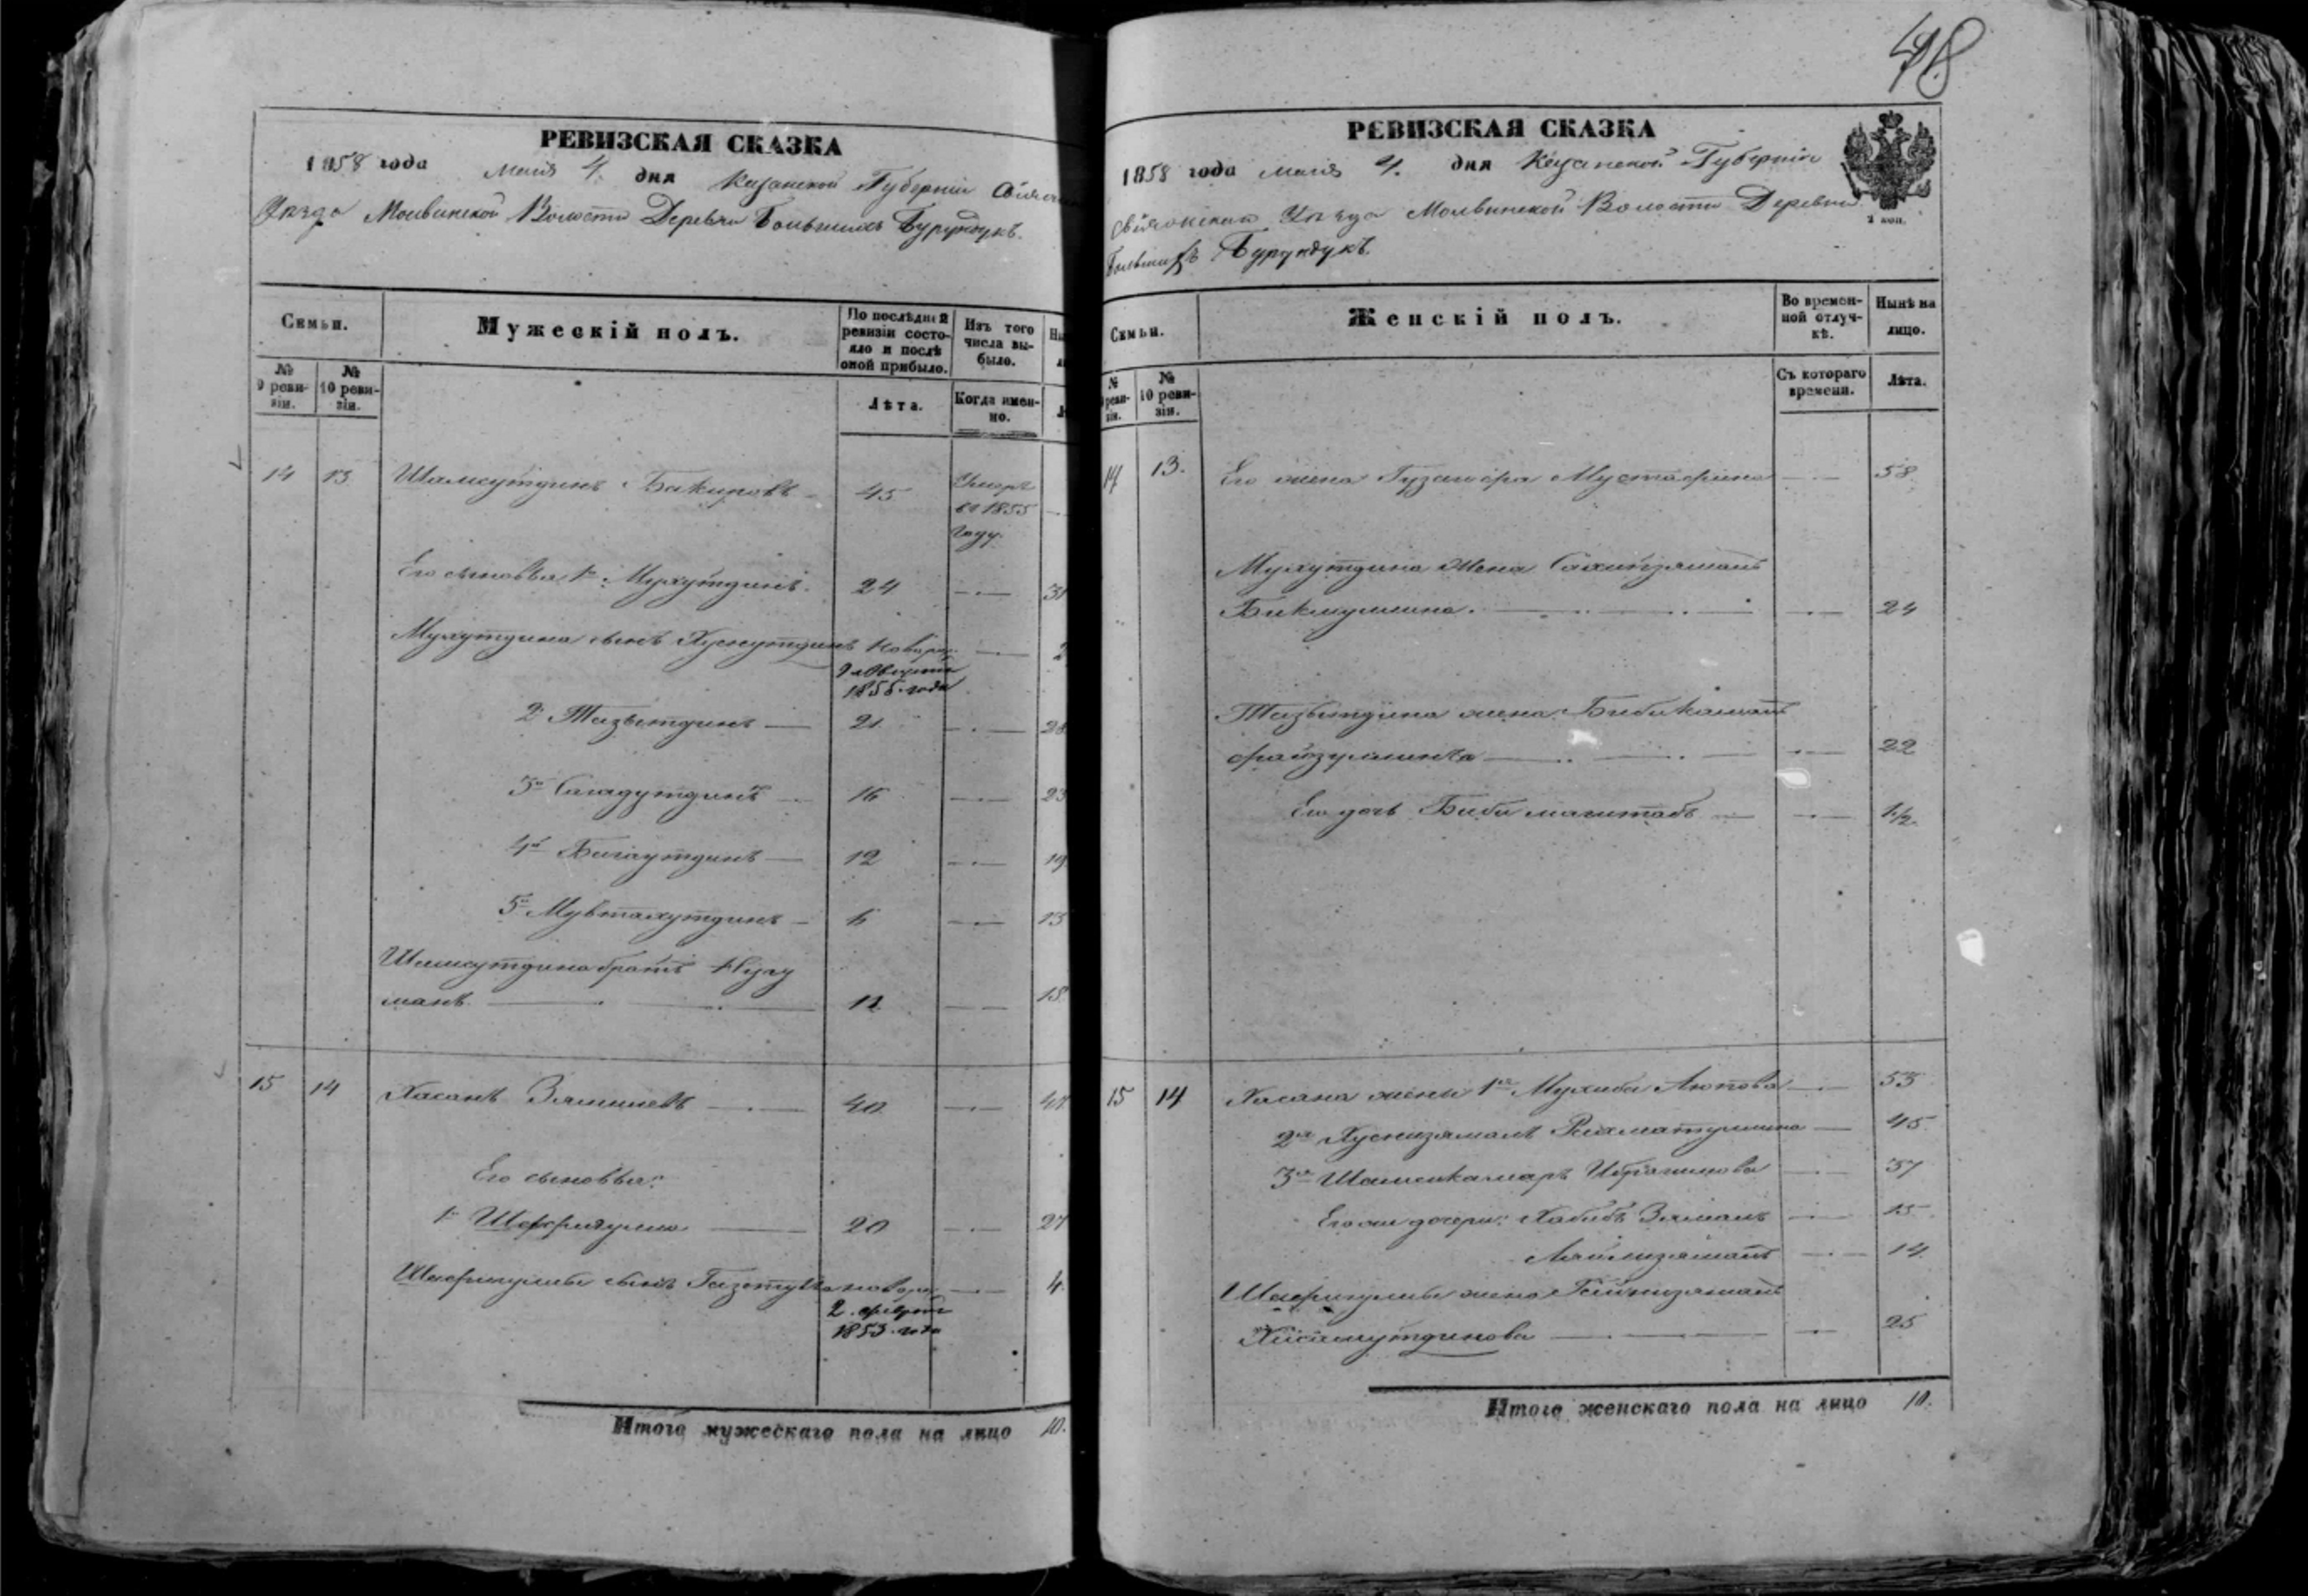 498
РЕВИЗСКАЯ СКАЗКА
1858 года Маія 4. дня Казанской Губерніи Свіяжск
Уѣзда Молвинской Волости Деревни Большихъ Бурундукъ.
Семьи.
Мужескій полъ.
По послѣдней ревизіи состояло и послѣ оной прибыло.
Изъ того числа выбыло.
№ 9 ревизіи.
№ 10 ревизіи.
Лѣта.
Когда именно.
14 13 Шамсутдинъ Бакировъ 45 Умеръ
въ 1855
году.
Его сыновья 1й Мухутдинъ. 24 31
Мухутдина сынъ Хуснутдинъ новорож. 2
9 Августа
1855 года
2й Тазетдинъ 21 28
3й Сагадутдинъ 16 23
4й Багаутдинъ 12 19
5й Мифтахутдинъ 6 13
Шамсутдина братъ Нугу
манъ 12 18.
15 14 Хасанъ Зямилевъ 40 47
Его сыновья:
1й Шафигулла 20 27
Шафигуллы сынъ новорож. 4
2 февраля
1853 года
Итого мужескаго пола на лицо 10.
РЕВИЗСКАЯ СКАЗКА
1858 года Маія 4. дня Казанской Губерніи
Свіяжскаго Уѣзда Молвинской Волости Деревни
Большихъ Бурундукъ.
2 коп.
Семьи.
Женскій полъ.
Во временной отлучкѣ.
Нынѣ на лицо.
№ ревизіи.
№ 10 ревизіи.
Съ котораго времени.
Лѣта.
14 13. Его жена Мустафина 58
Мухутдина жена
Бикмуллина. 24
Тазетдина жена Бибикамалъ
Файзуллина 22
Его дочь Биби 1½.
15 14 Хасана жены 1я Мухиба Аюпова 53
2я Хуснизямалъ Рахматуллина 45
3я Шамсикамаръ Ибрагимова 37
Его дочери: Хабибъ Зямалъ 15
Ляйлизямалъ 14.
Шафигуллы жена
Хисамутдинова 25
Итого женскаго пола на лицо 10.